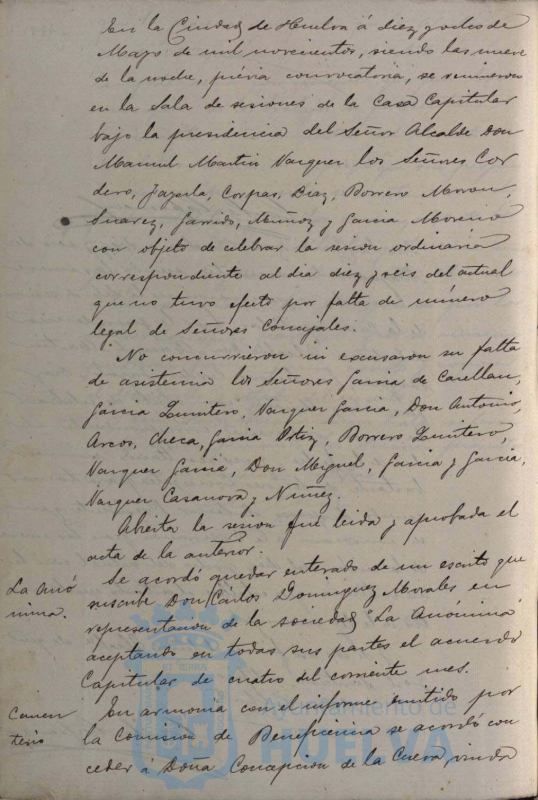 En la Ciudad de Huelva á diez y ocho de
Mayo de mil novecientos, siendo las nueve
de la noche, prévia convocatoria, se reunieron
en la Sala de sesiones de la Casa Capitular
bajo la presidencia del Señor Alcalde Don
Manuel Martin Vazquez los Señores Cor
dero, Jazurla, Corpas, Diaz, Borrero Moron,
Suarez, Garrido, Muñoz y Garcia Moreno
con objeto de celebrar la sesion ordinaria
correspondiente al dia diez y seis del actual
que no tuvo efecto por falta de número
legal de Señores Concejales.
No concurrieron ni excusaron su falta
de asistencia los Señores Garcia de Casellan,
Garcia Quintero, Vazquez Garcia, Don Antonio,
Arcos, Checa, Garcia Ortiz, Borrero Quintero,
Vazquez Garcia, Don Miguel, Garcia y Garcia,
Vazquez Casanova y Nuñez.
Abierta la sesion fué leida y aprobada el
acta de la anterior.
La Anó
nima.
Se acordó quedar enterado de un escrito que
suscribe Don Cárlos Dominguez Morales en
representacion de la sociedad "La Anónima"
aceptando en todas sus partes el acuerdo
Capitular de cuatro del corriente mes.
Cemen
terio
En armonía con el informe emitido por
la Comision de Beneficencia se acordó con
ceder á Doña Concepcion de la Cueva, viuda
Ayuntamiento de
HUELVA